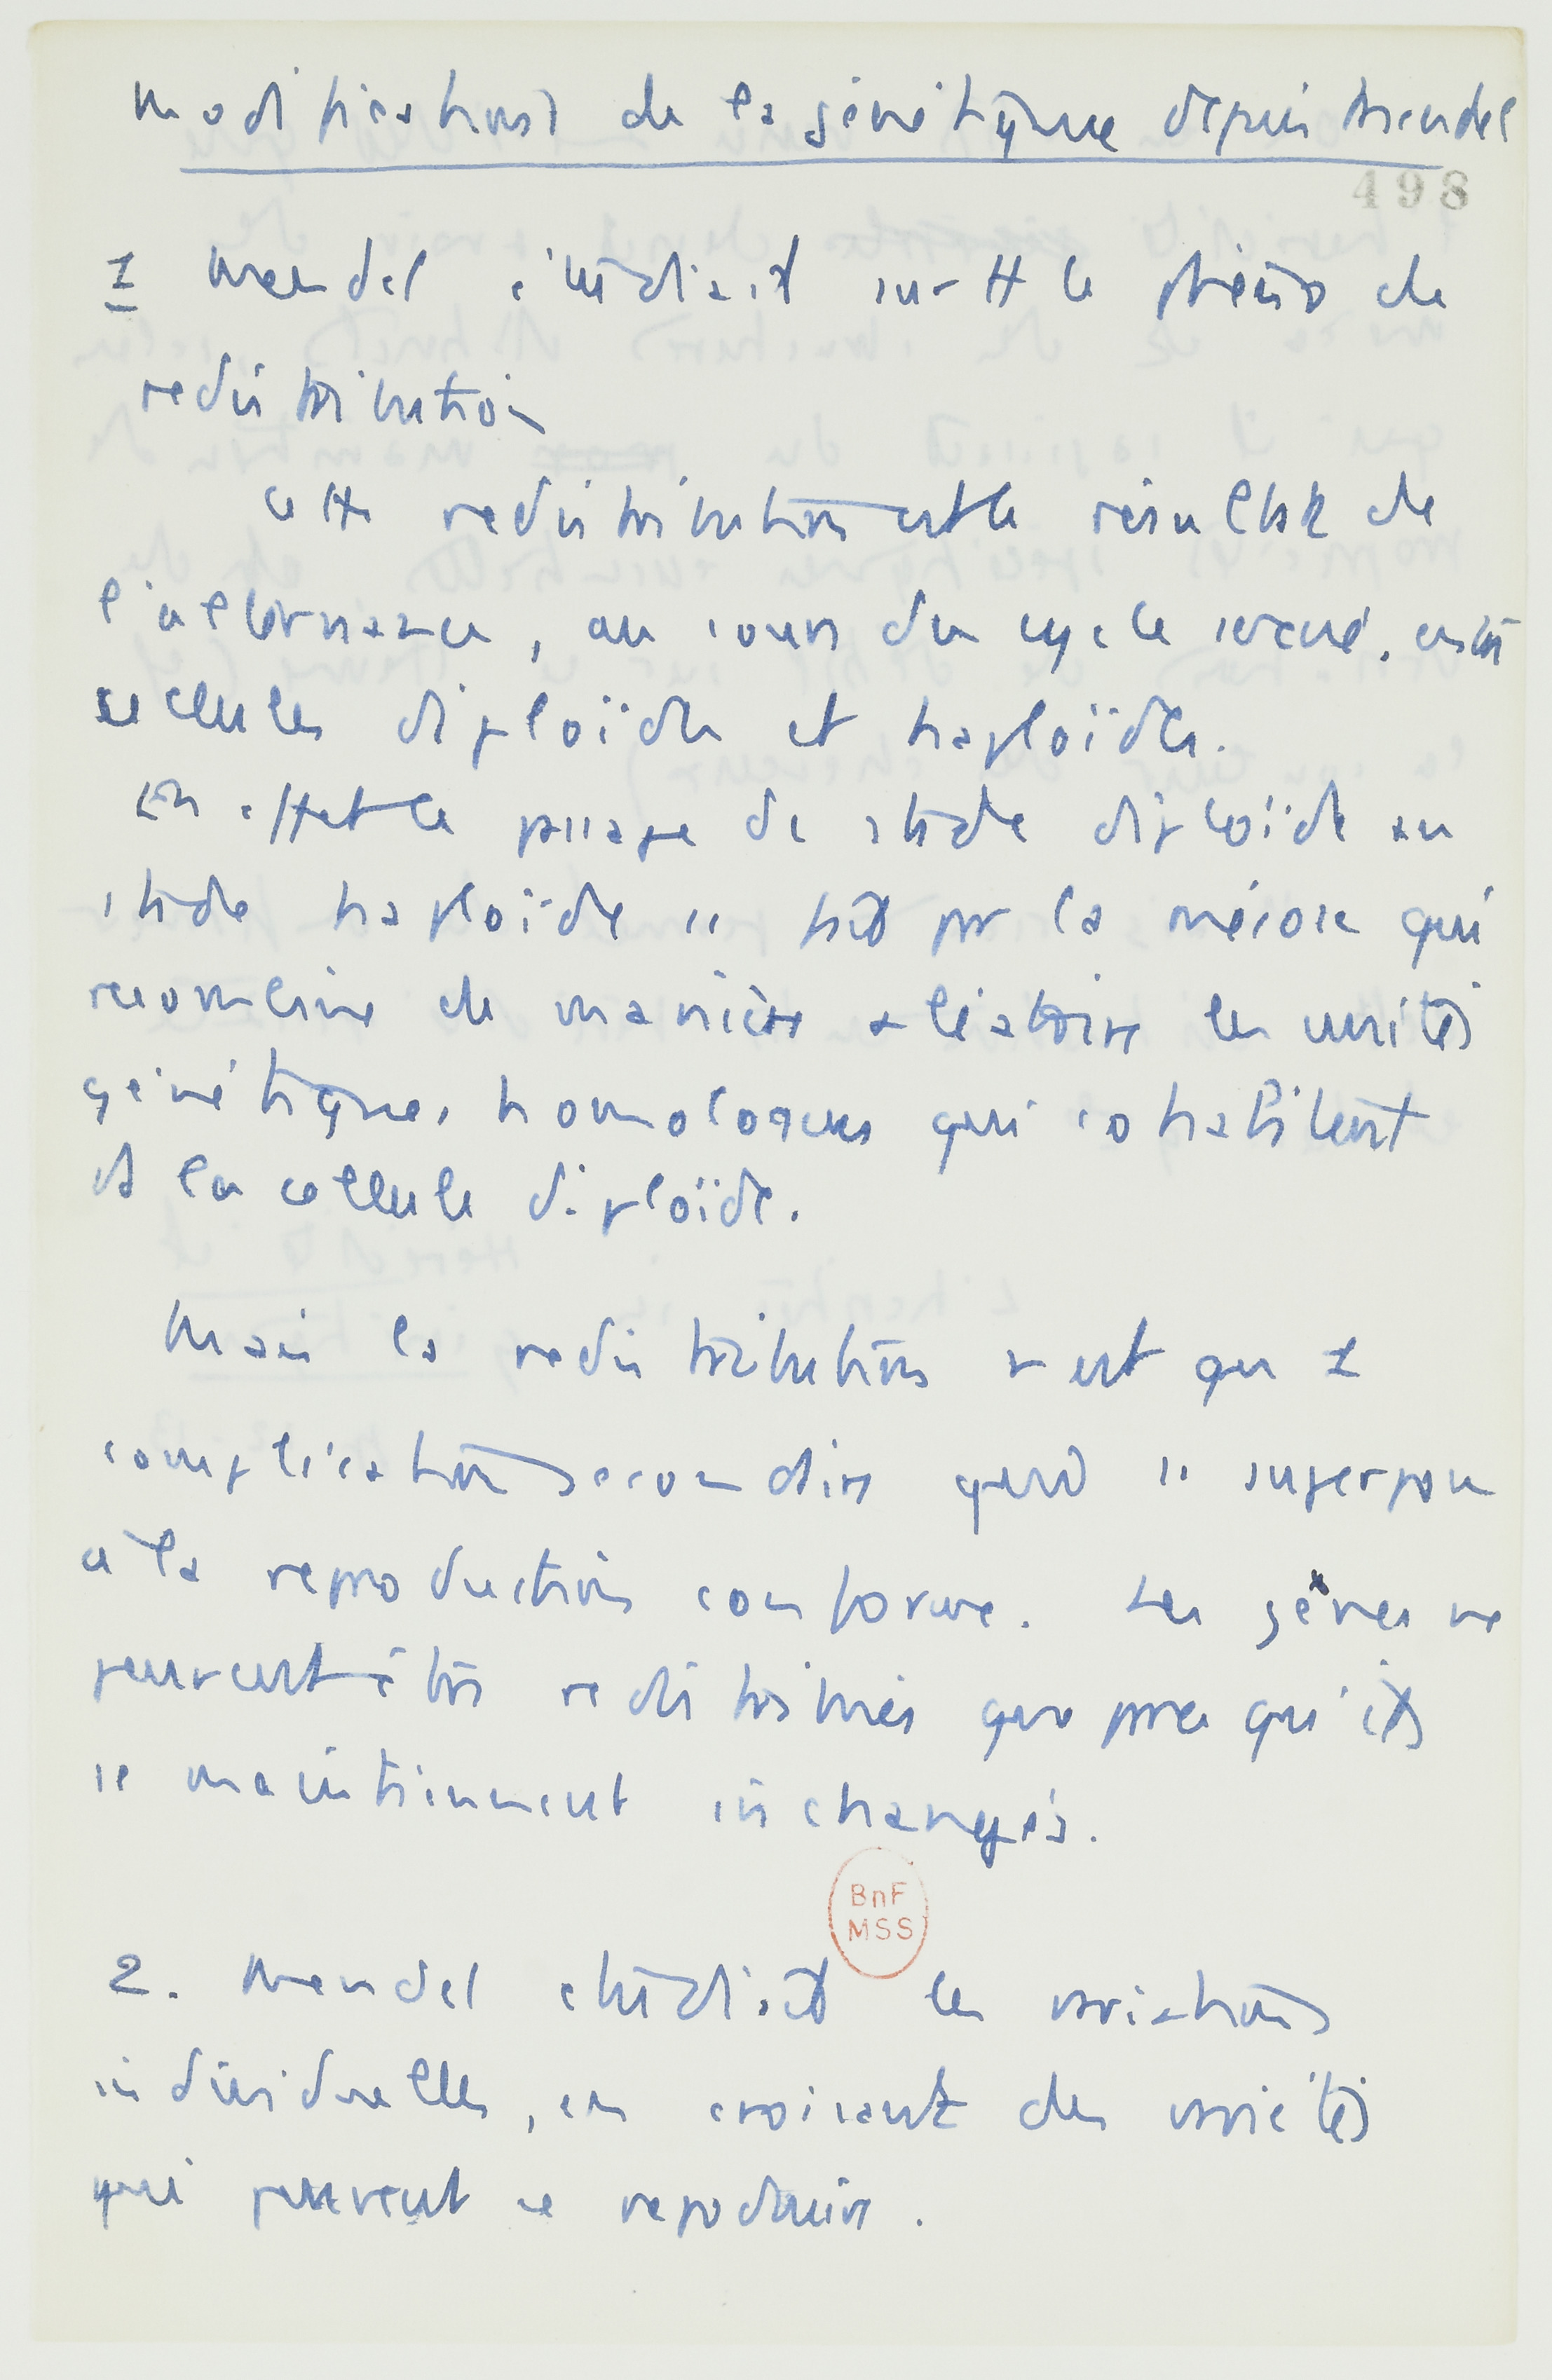 Modifications de la génétique depuis Mendel
498
1 Mendel étudiait surtt le phéno de
redistribution
cette redistribution est le résultat de
l'alternance, au cours du cycle sexué, entre
cellules diploïdes et haploïdes.
En effet le passage de stade diploïde au
stade haploïde se fait par la méiose qui
recombine de manière aléatoire les unités
génétiques homologues qui cohabitent
ds la cellule diploïde.
Mais la redistribution n'est que 1
complication secondaire quand se superpose
à la reproduction conforme. Les gènes ne
peuvent être redistribués que parce qu'ils
se maintiennent inchangés.
BnF
MSS
2. Mendel étudiait les variations
individuelles, en croisant des variétés
qui peuvent se repoduire.